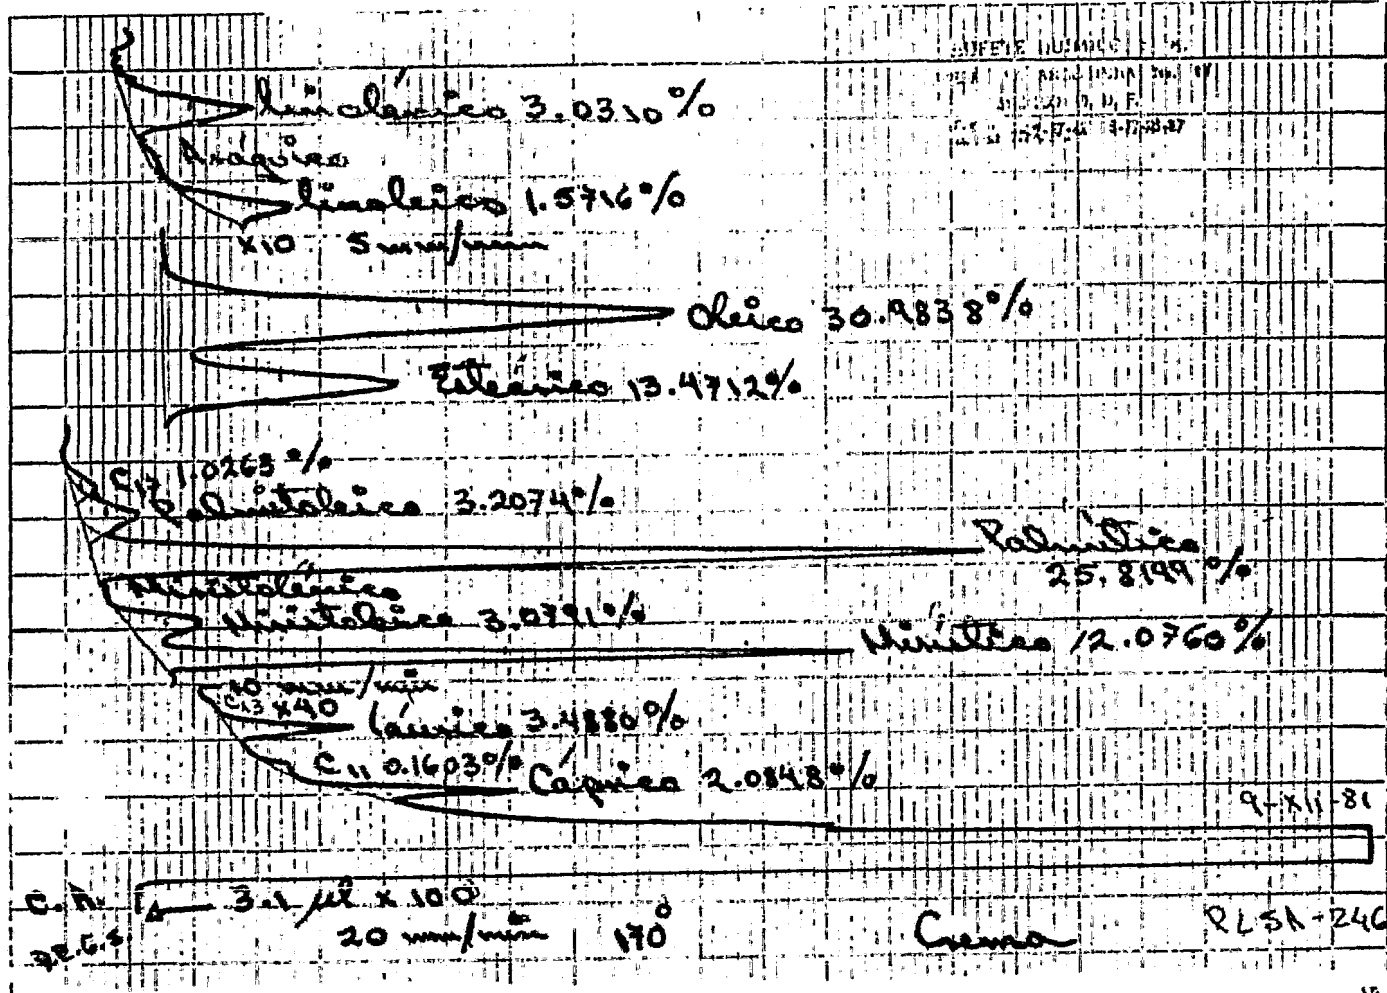 Linolénico 3.0310%
Araquico
Linoleico 1.5716%
x10 5 mm/min
Oleico 30.9838%
Esteárico 13.4712%
C17 1.0263%
Palmitoleico 3.2074%
Palmítico
25.8199%
Miristolénico
Miristoleico 3.0791%
Mirístico 12.0760%
10 mm/min
C13 x40
Láurico 3.4880%
C11 0.1603%
Cáprico 2.0848%
9-XII-81
3.1 µl x 100
20 mm/min 170°
Crema
PLSA-246